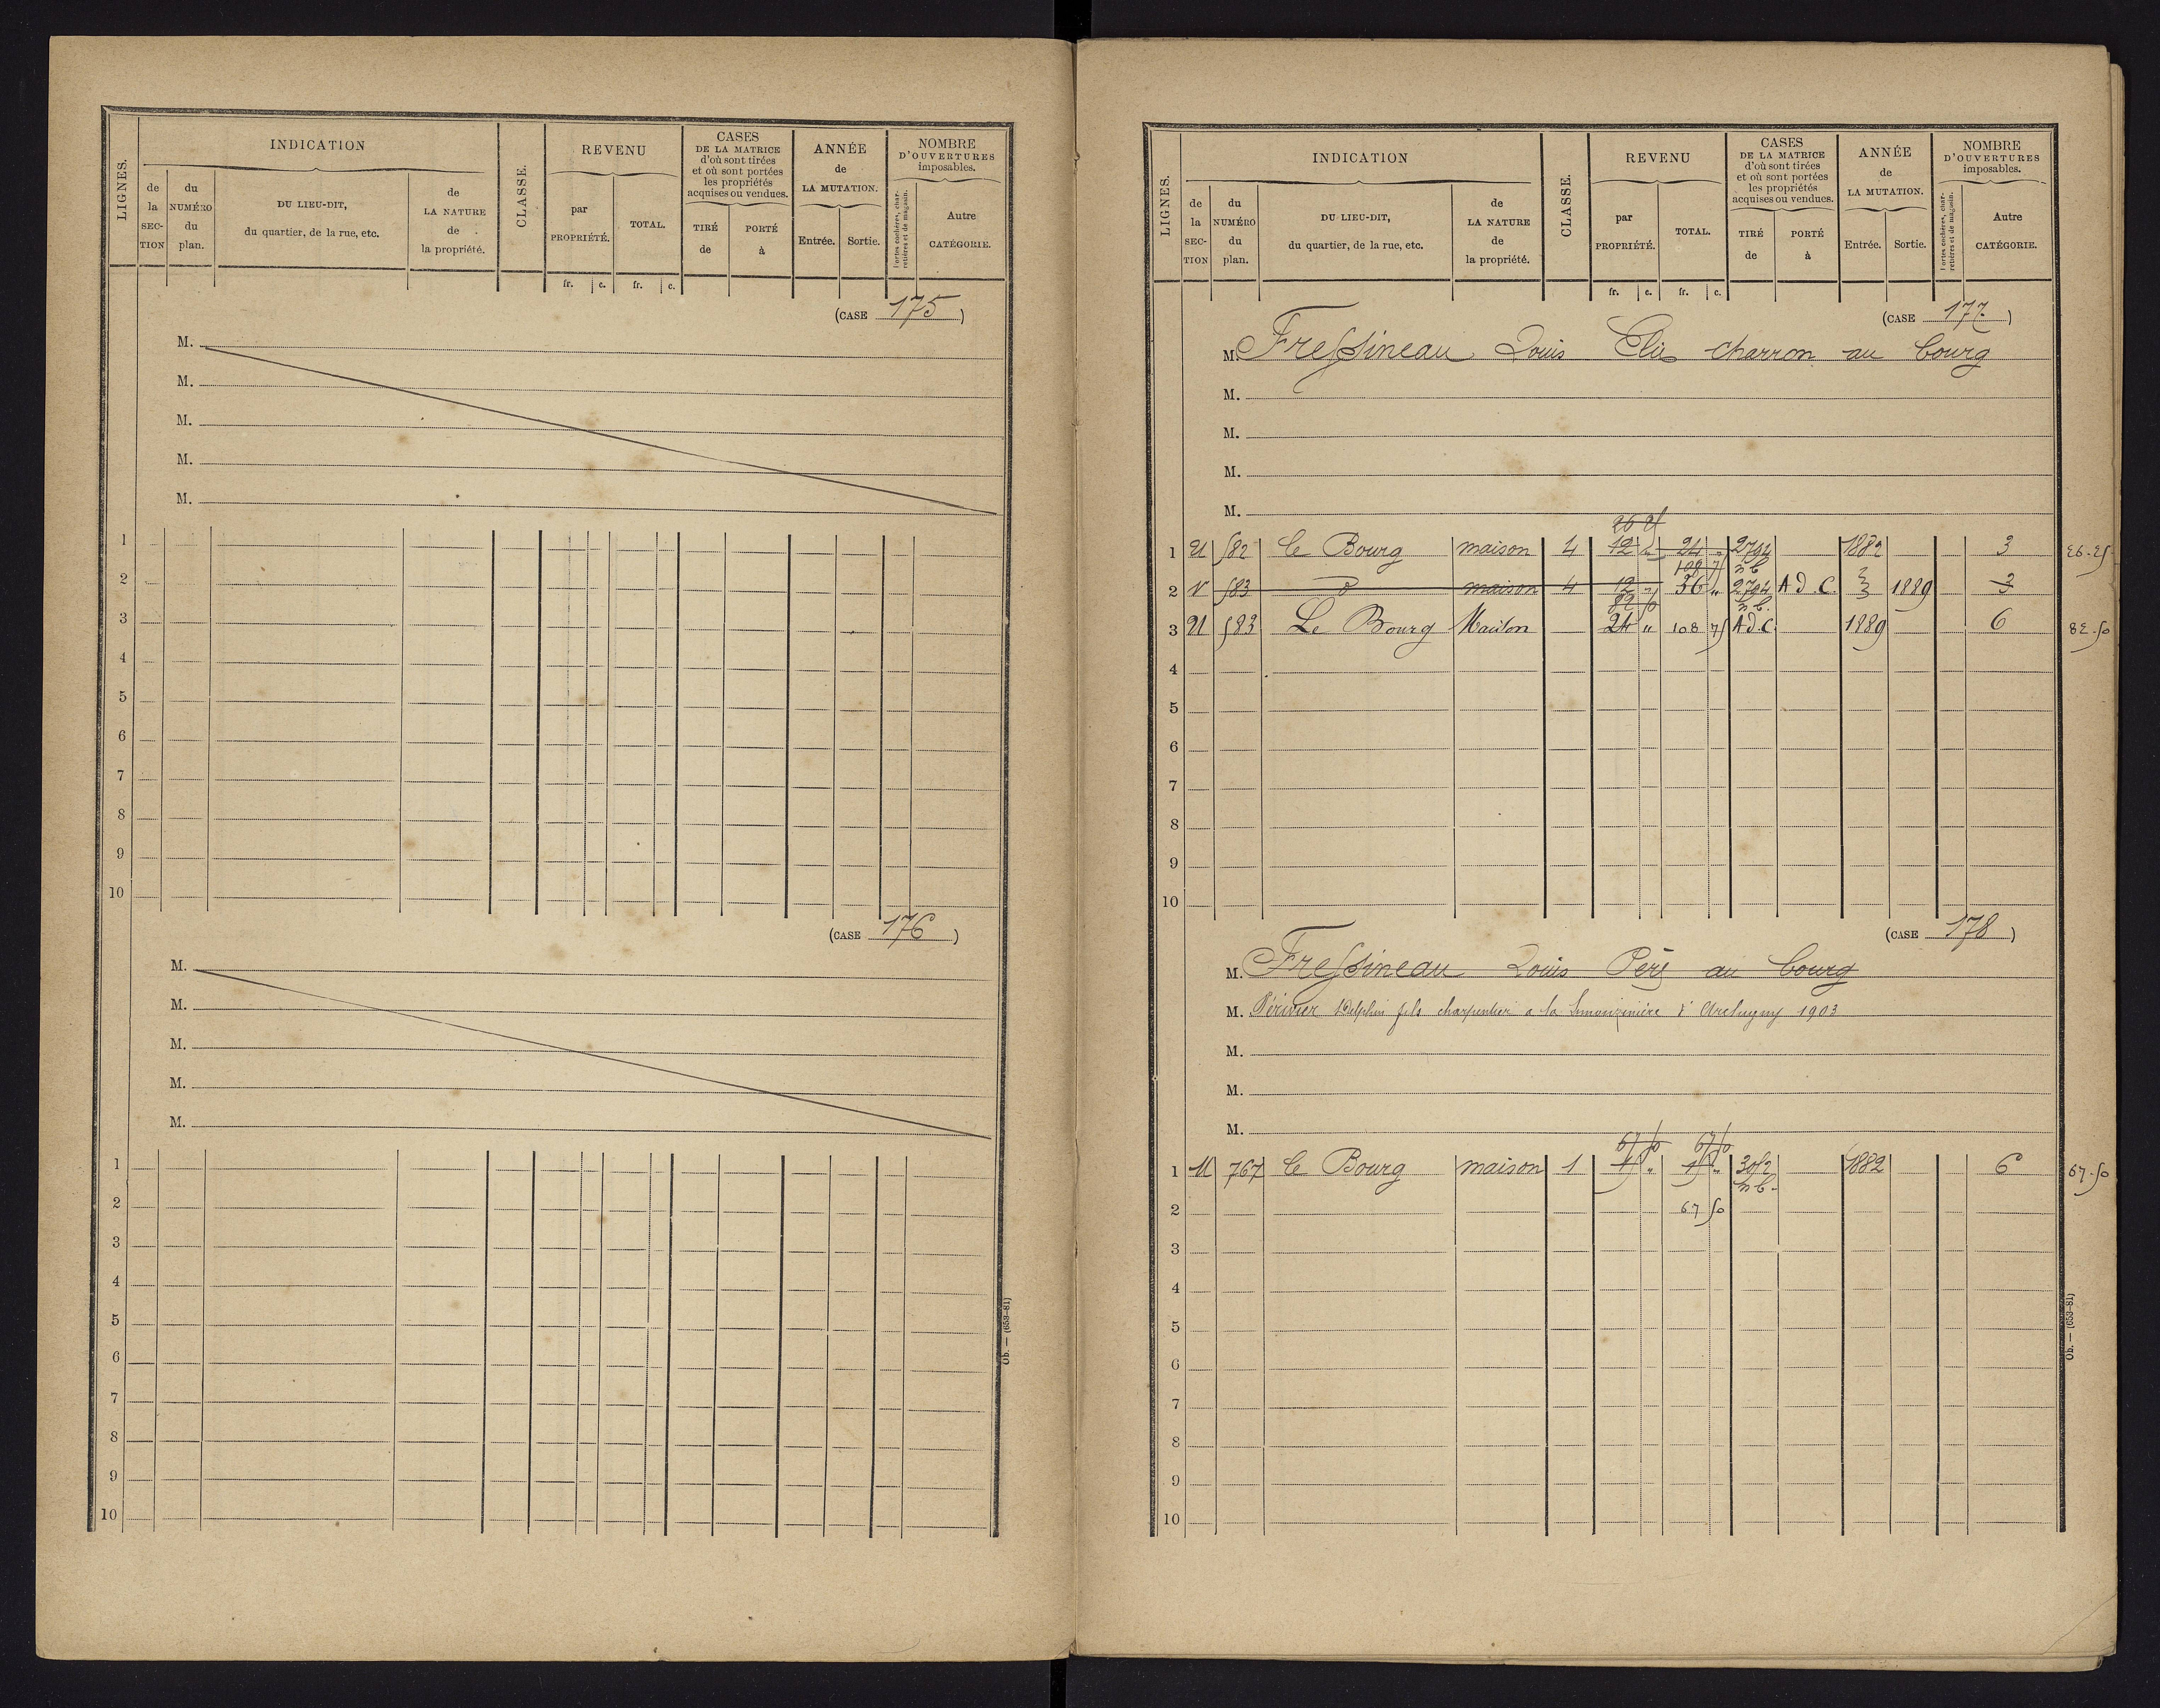 LIGNES.
INDICATION
de la SECTION
du NUMÉRO du plan.
DU LIEU-DIT, du quartier, de la rue, etc.
de LA NATURE de la propriété.
CLASSE.
REVENU
par PROPRIÉTÉ.
TOTAL.
fr. c. fr. c.
CASES DE LA MATRICE d'où sont tirées et où sont portées les propriétés acquises ou vendues.
TIRÉ de
PORTÉ à
ANNÉE de LA MUTATION.
Entrée. Sortie.
NOMBRE D'OUVERTURES imposables.
Portes cochères, charretières et de magasin.
Autre CATÉGORIE.
(CASE 175)
M.
M.
M.
M.
M.
1
2
3
4
5
6
7
8
9
10
(CASE 176)
M.
M.
M.
M.
M.
1
2
3
4
5
6
7
8
9
10
Ob. — (653-81)
LIGNES.
INDICATION
de la SECTION
du NUMÉRO du plan.
DU LIEU-DIT, du quartier, de la rue, etc.
de LA NATURE de la propriété.
CLASSE.
REVENU
par PROPRIÉTÉ.
TOTAL.
fr. c. fr. c.
CASES DE LA MATRICE d'où sont tirées et où sont portées les propriétés acquises ou vendues.
TIRÉ de
PORTÉ à
ANNÉE de LA MUTATION.
Entrée. Sortie.
NOMBRE D'OUVERTURES imposables.
Portes cochères, charretières et de magasin.
Autre CATÉGORIE.
(CASE 177)
M. Fressineau Louis Elie charron au bourg
M.
M.
M.
M.
26 25
1 U 582 le Bourg maison 4 12 " 24 " 2794 1882 3 26.25
108 75 n b
2 V 583 d maison 4 12 " 36 " 2794 A d. C. 1889 3
82 50 n b.
3 U 583 Le Bourg Maison 24 " 108 75 A d. C. 1889 6 82.50
4
5
6
7
8
9
10
(CASE 178)
M. Fressineau Louis Père au bourg
M. Périvier Delphin fils charpentier a la Limouzinière d' Archigny 1903
M.
M.
M.
67 50 67 50
1 U 767 le Bourg maison 1 15 " 15 " 3052 1882 6 67.50
n b.
2 67 50
3
4
5
6
7
8
9
10
Ob. — (653-81)